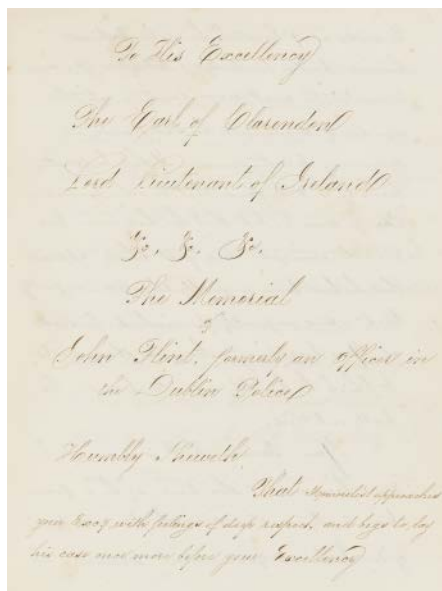 To His Excellency
The Earl of Clarendon
Lord Lieutenant of Ireland
&c. &c. &c.
The Memorial
of
John Flint, formerly an officer in
the Dublin Police
Humbly Sheweth
That Memorialist approaches
your Excy with feelings of deep respect, and begs to lay
his case once more before your Excellency